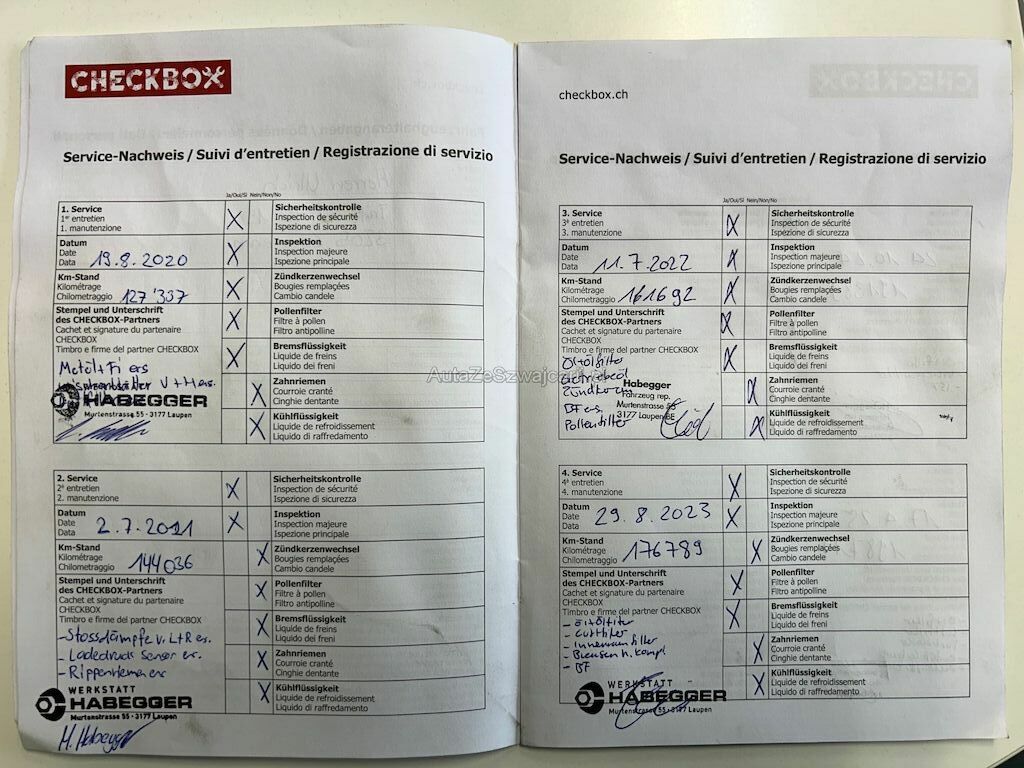 CHECKBOX
Service-Nachweis / Suivi d'entretien / Registrazione di servizio
Ja/Oui/Si Nein/Non/No
1. Service
1er entretien
1. manutenzione
X
Sicherheitskontrolle
Inspection de sécurité
Ispezione di sicurezza
Datum
Date
Data 19.8.2020
X
Inspektion
Inspection majeure
Ispezione principale
Km-Stand
Kilométrage
Chilometraggio 127'337
X
Zündkerzenwechsel
Bougies remplaçées
Cambio candele
Stempel und Unterschrift
des CHECKBOX-Partners
Cachet et signature du partenaire
CHECKBOX
Timbro e firme del partner CHECKBOX
X
Pollenfilter
Filtre à pollen
Filtro antipolline
X
Bremsflüssigkeit
Liquide de freins
Liquido dei freni
X
Zahnriemen
Courroie cranté
Cinghie dentante
X
Kühlflüssigkeit
Liquide de refroidissement
Liquido di raffredamento
V + H ers.
HABEGGER
Murtenstrasse 55 - 3177 Laupen
2. Service
2e entretien
2. manutenzione
X
Sicherheitskontrolle
Inspection de sécurité
Ispezione di sicurezza
Datum
Date
Data 2.7.2021
X
Inspektion
Inspection majeure
Ispezione principale
Km-Stand
Kilométrage
Chilometraggio 144036
X
Zündkerzenwechsel
Bougies remplaçées
Cambio candele
Stempel und Unterschrift
des CHECKBOX-Partners
Cachet et signature du partenaire
CHECKBOX
Timbro e firme del partner CHECKBOX
X
Pollenfilter
Filtre à pollen
Filtro antipolline
X
Bremsflüssigkeit
Liquide de freins
Liquido dei freni
X
Zahnriemen
Courroie cranté
Cinghie dentante
X
Kühlflüssigkeit
Liquide de refroidissement
Liquido di raffredamento
- Stossdämpfe v. L+R er.
- Ladedruck Sensor er.
- Rippenriemen er
WERKSTATT
HABEGGER
Murtenstrasse 55 - 3177 Laupen
M. Habegger
checkbox.ch
Service-Nachweis / Suivi d'entretien / Registrazione di servizio
Ja/Oui/Si Nein/Non/No
3. Service
3e entretien
3. manutenzione
X
Sicherheitskontrolle
Inspection de sécurité
Ispezione di sicurezza
Datum
Date
Data 11.7.2022
X
Inspektion
Inspection majeure
Ispezione principale
Km-Stand
Kilométrage
Chilometraggio 161692
X
Zündkerzenwechsel
Bougies remplaçées
Cambio candele
Stempel und Unterschrift
des CHECKBOX-Partners
Cachet et signature du partenaire
CHECKBOX
Timbro e firme del partner CHECKBOX
X
Pollenfilter
Filtre à pollen
Filtro antipolline
X
Bremsflüssigkeit
Liquide de freins
Liquido dei freni
X
Zahnriemen
Courroie cranté
Cinghie dentante
X
Kühlflüssigkeit
Liquide de refroidissement
Liquido di raffredamento
Öl+ölfilter
BF er.
Pollenfilter
Habegger
Fahrzeug rep.
Murtenstrasse 55
3177 Laupen BE
4. Service
4e entretien
4. manutenzione
X
Sicherheitskontrolle
Inspection de sécurité
Ispezione di sicurezza
Datum
Date
Data 29.8.2023
X
Inspektion
Inspection majeure
Ispezione principale
Km-Stand
Kilométrage
Chilometraggio 176789
X
Zündkerzenwechsel
Bougies remplaçées
Cambio candele
Stempel und Unterschrift
des CHECKBOX-Partners
Cachet et signature du partenaire
CHECKBOX
Timbro e firme del partner CHECKBOX
X
Pollenfilter
Filtre à pollen
Filtro antipolline
X
Bremsflüssigkeit
Liquide de freins
Liquido dei freni
X
Zahnriemen
Courroie cranté
Cinghie dentante
X
Kühlflüssigkeit
Liquide de refroidissement
Liquido di raffredamento
- Öl+ölfilter
- Luftfilter
- Innenraumfilter
- Bremsen h. kompl
- BF
WERKSTATT
HABEGGER
Murtenstrasse 55 - 3177 Laupen